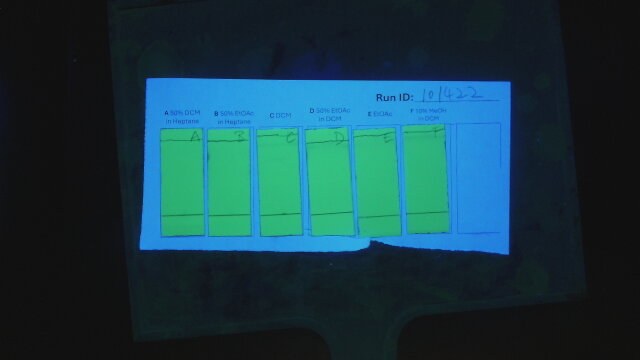 Run ID: 101422
A 50% DCM in Heptane
B 50% EtOAc in Heptane
C DCM
D 50% EtOAc in DCM
E EtOAc
F 10% MeOH in DCM
A B C D E F